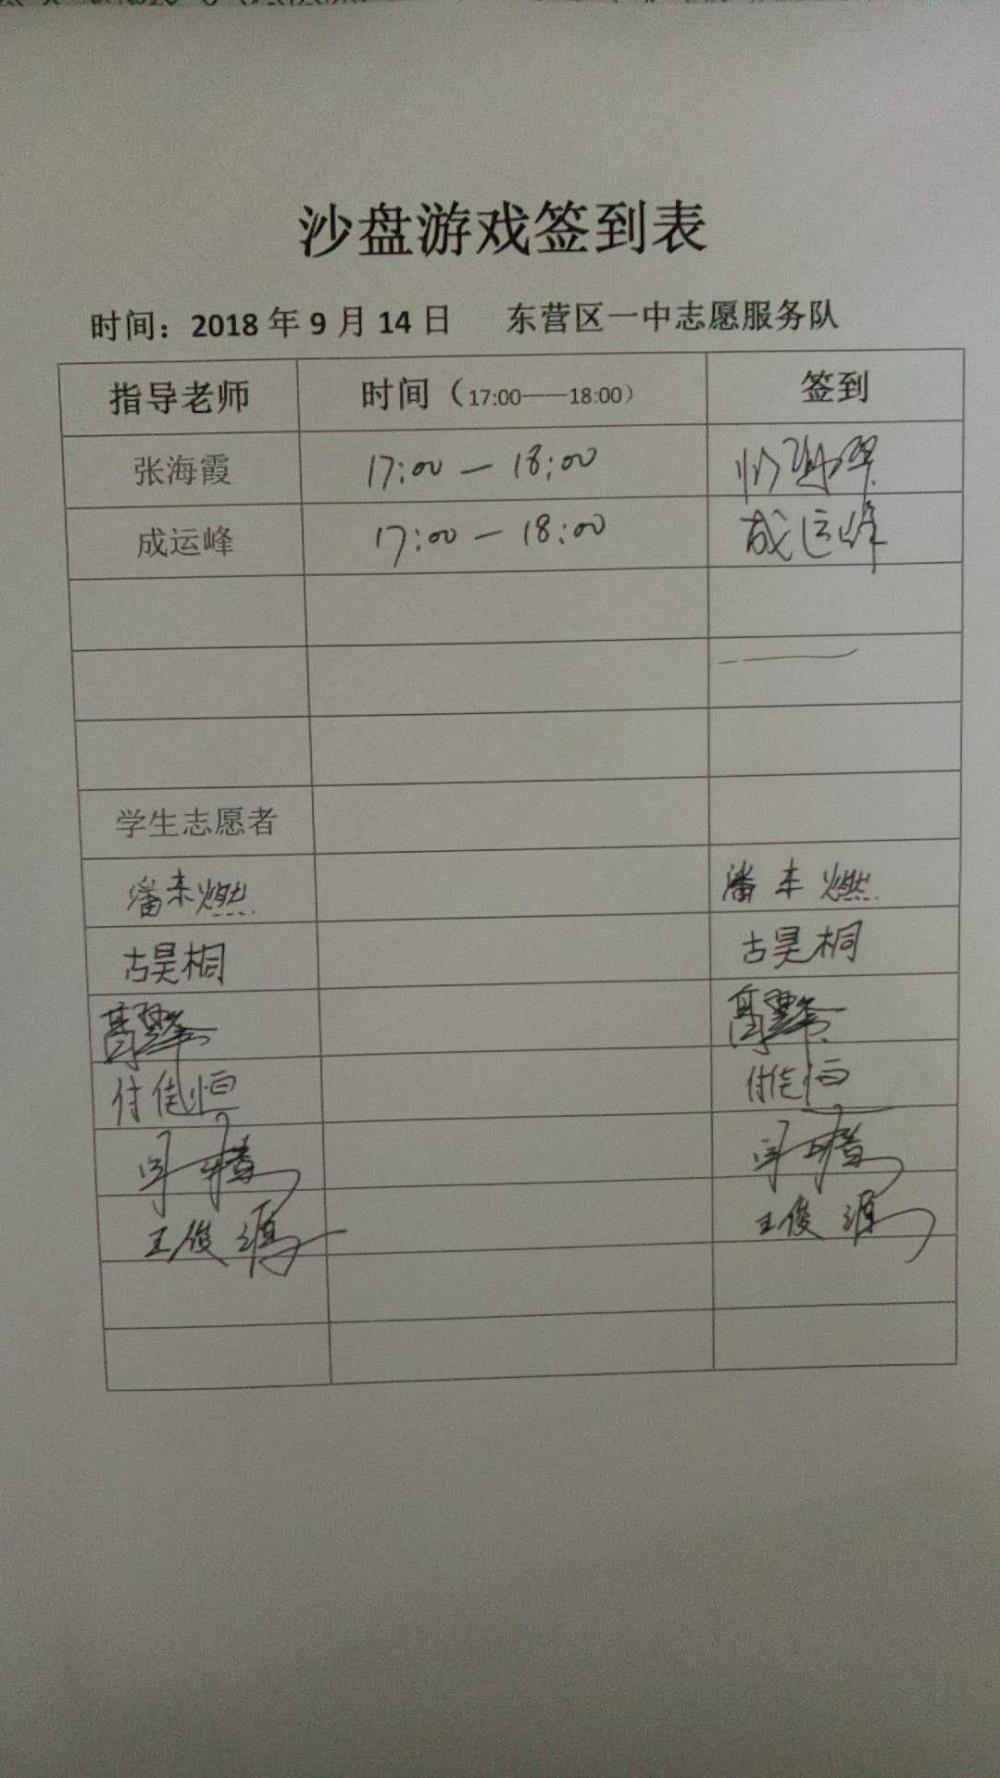 沙盘游戏签到表
时间：2018年9月14日 东营区一中志愿服务队
指导老师 时间（17:00——18:00） 签到
张海霞 17:00 — 18:00
成运峰 17:00 — 18:00 成运峰
学生志愿者
潘未燃 潘未燃
古昊桐 古昊桐
高 高
付佳恒 付佳恒
闫 闫
王俊源 王俊源